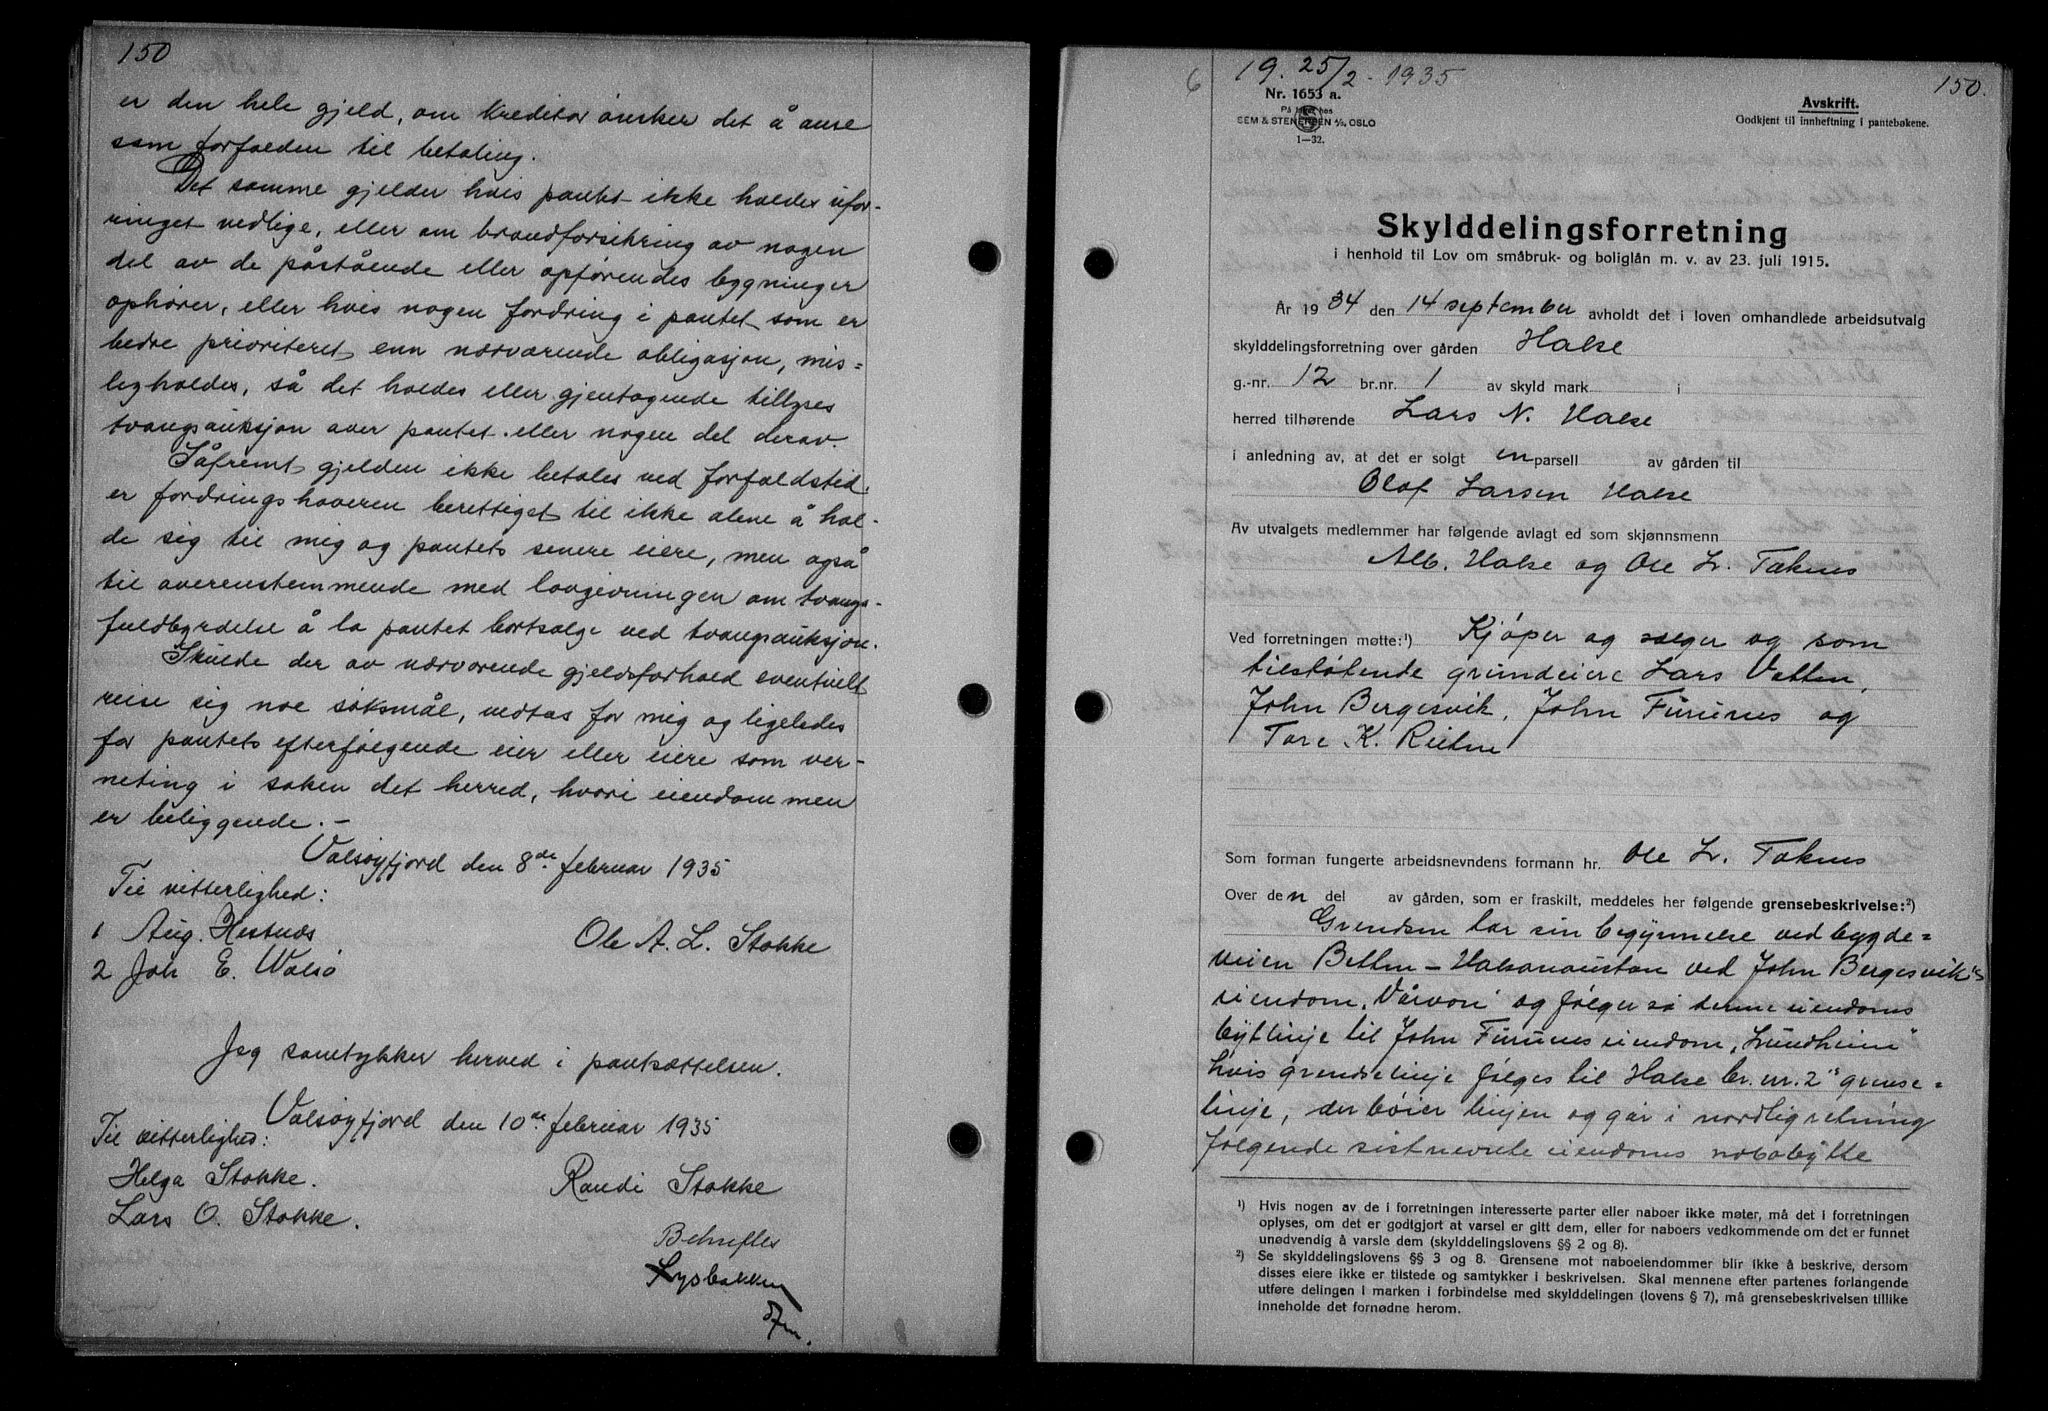 150
er den hele gjeld, om kreditor ønsker det å anse
som forfalden til betaling.
Det samme gjelder hvis pantet ikke holdes ufor-
ringet vedlige, eller om brandforsikring av nogen
del av de påstående eller opførendes bygninger
ophører, eller hvis nogen fordring i pantet som er
bedre prioriteret enn nærværende obligasjon, mis-
ligholdes, så det holdes eller gjentagende tillyses
tvangsauksjon over pantet eller nogen del derav.
Såfremt gjelden ikke betales ved forfaldstid,
er fordringshaveren berettiget til ikke alene å hol-
de sig til mig og pantets senere eiere, men også
til overenstemmende med lovgivningen om tvangs-
fuldbyrdelse å la pantet bortsælge ved tvangsauksjon.
Skulde der av nærværende gjeldsforhold eventuelt
reise sig noe søksmål, vedtas for mig og ligeledes
for pantets efterfølgende eier eller eiere som ver-
neting i saken det herred, hvori eiendommen
er beliggende. -
Valsøyfjord den 8de februar 1935
Til vitterlighed:
1 Aug. Hestnæs
Ole A. L. Stokke
2 Joh E. Walsø
Jeg samtykker herved i pantsættelsen.
Valsøyfjord den 10de februar 1935
Til vitterlighed:
Helga Stokke.
Randi Stokke
Lars O. Stokke.
Behreftes
Lysbakken
6 19. 25/2 - 1935
150.
Nr. 1653 a.
På lager hos
SEM & STENERSEN A/S, OSLO
1-32.
Avskrift.
Godkjent til innheftning i pantebøkene.
Skylddelingsforretning
i henhold til Lov om småbruk- og boliglån m. v. av 23. juli 1915.
År 1934 den 14 september avholdt det i loven omhandlede arbeidsutvalg
skylddelingsforretning over gården Halse
g.-nr. 12 br.nr. 1 av skyld mark i
herred tilhørende Lars N. Halse
i anledning av, at det er solgt en parsell av gården til
Olaf Larsen Halse
Av utvalgets medlemmer har følgende avlagt ed som skjønnsmenn
Alb. Halse og Ole L. Taknes
Ved forretningen møtte:¹) Kjøper og sælger og som
tilstøtende grundeiere Lars Vetten,
John Bergesvik, John Furunes og
Tore K. Reiten
Som forman fungerte arbeidsnevndens formann hr. Ole L. Taknes
Over den del av gården, som er fraskilt, meddeles her følgende grensebeskrivelse:²)
Grendsen tar sin begynnelse ved bygde=
veien Betten - Halsanaustan ved John Bergesvik's
eiendom „Vårvon" og følger så denne eiendoms
bytlinje til John Furunes eiendom „Lundheim"
hvis grendselinje følges til Halse br. nr. 2" grense-
linje, der bøier linjen og går i nordlig retning
følgende sistnevnte eiendoms nabobytte
¹) Hvis nogen av de i forretningen interesserte parter eller naboer ikke møter, må det i forretningen
oplyses, om det er godtgjort at varsel er gitt dem, eller for naboers vedkommende om det er funnet
unødvendig å varsle dem (skylddelingslovens §§ 2 og 8).
²) Se skylddelingslovens §§ 3 og 8. Grensene mot naboeiendommer blir ikke å beskrive, dersom
disses eiere ikke er tilstede og samtykker i beskrivelsen. Skal mennene efter partenes forlangende
utføre delingen i marken i forbindelse med skylddelingen (lovens § 7), må grensebeskrivelsen tillike
inneholde det fornødne herom.